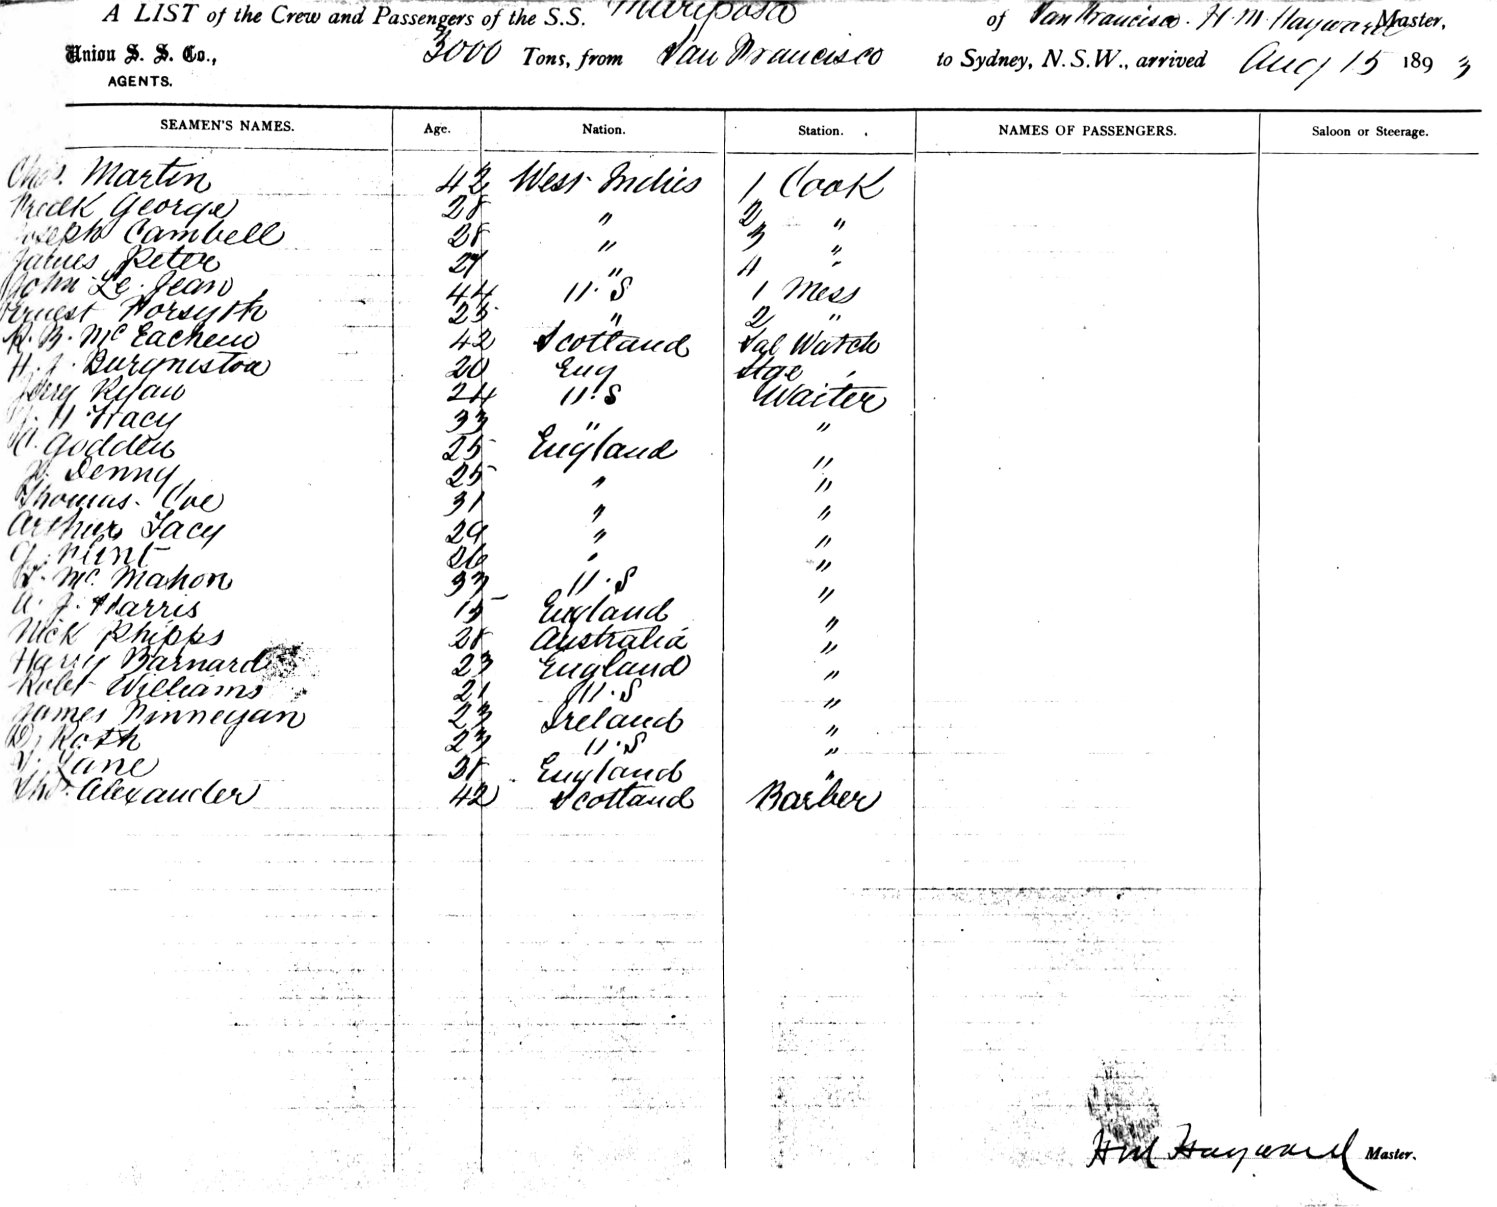 A LIST of the Crew and Passengers of the S.S. Mariposa of San Francisco. H. M. Hayward Master,
Union S. S. Co., 3000 Tons, from San Francisco to Sydney, N.S.W., arrived Aug 15 1893
AGENTS.
SEAMEN'S NAMES. Age. Nation. Station. NAMES OF PASSENGERS. Saloon or Steerage.
Chas. Martin 42 West Indies 1 Cook
Fredk George 28 " 2 "
Joseph Cambell 28 " 3 "
James Peter 27 " 4 "
John Le Jean 44 U.S 1 Mess
Ernest Forsyth 25 " 2 "
Mc Eachern 42 Scotland Sal Watch
H. J. 20 Eng Stge "
Jerry Ryan 24 U.S Waiter
H. Tracy 33 " "
Godden 25 England "
Denny 25 " "
Thomas Coe 31 " "
Arthur Lacy 29 " "
Hunt 26 " "
Mc Mahon 33 U.S "
J. Harris 15 England "
Nick Phipps 28 Australia "
Harry Barnard 23 England "
Robt Williams 21 U.S "
James Finnegan 23 Ireland "
D. Roth 23 U.S "
Lane 38 England "
Thos. Alexander 42 Scotland Barber
H M Hayward Master.